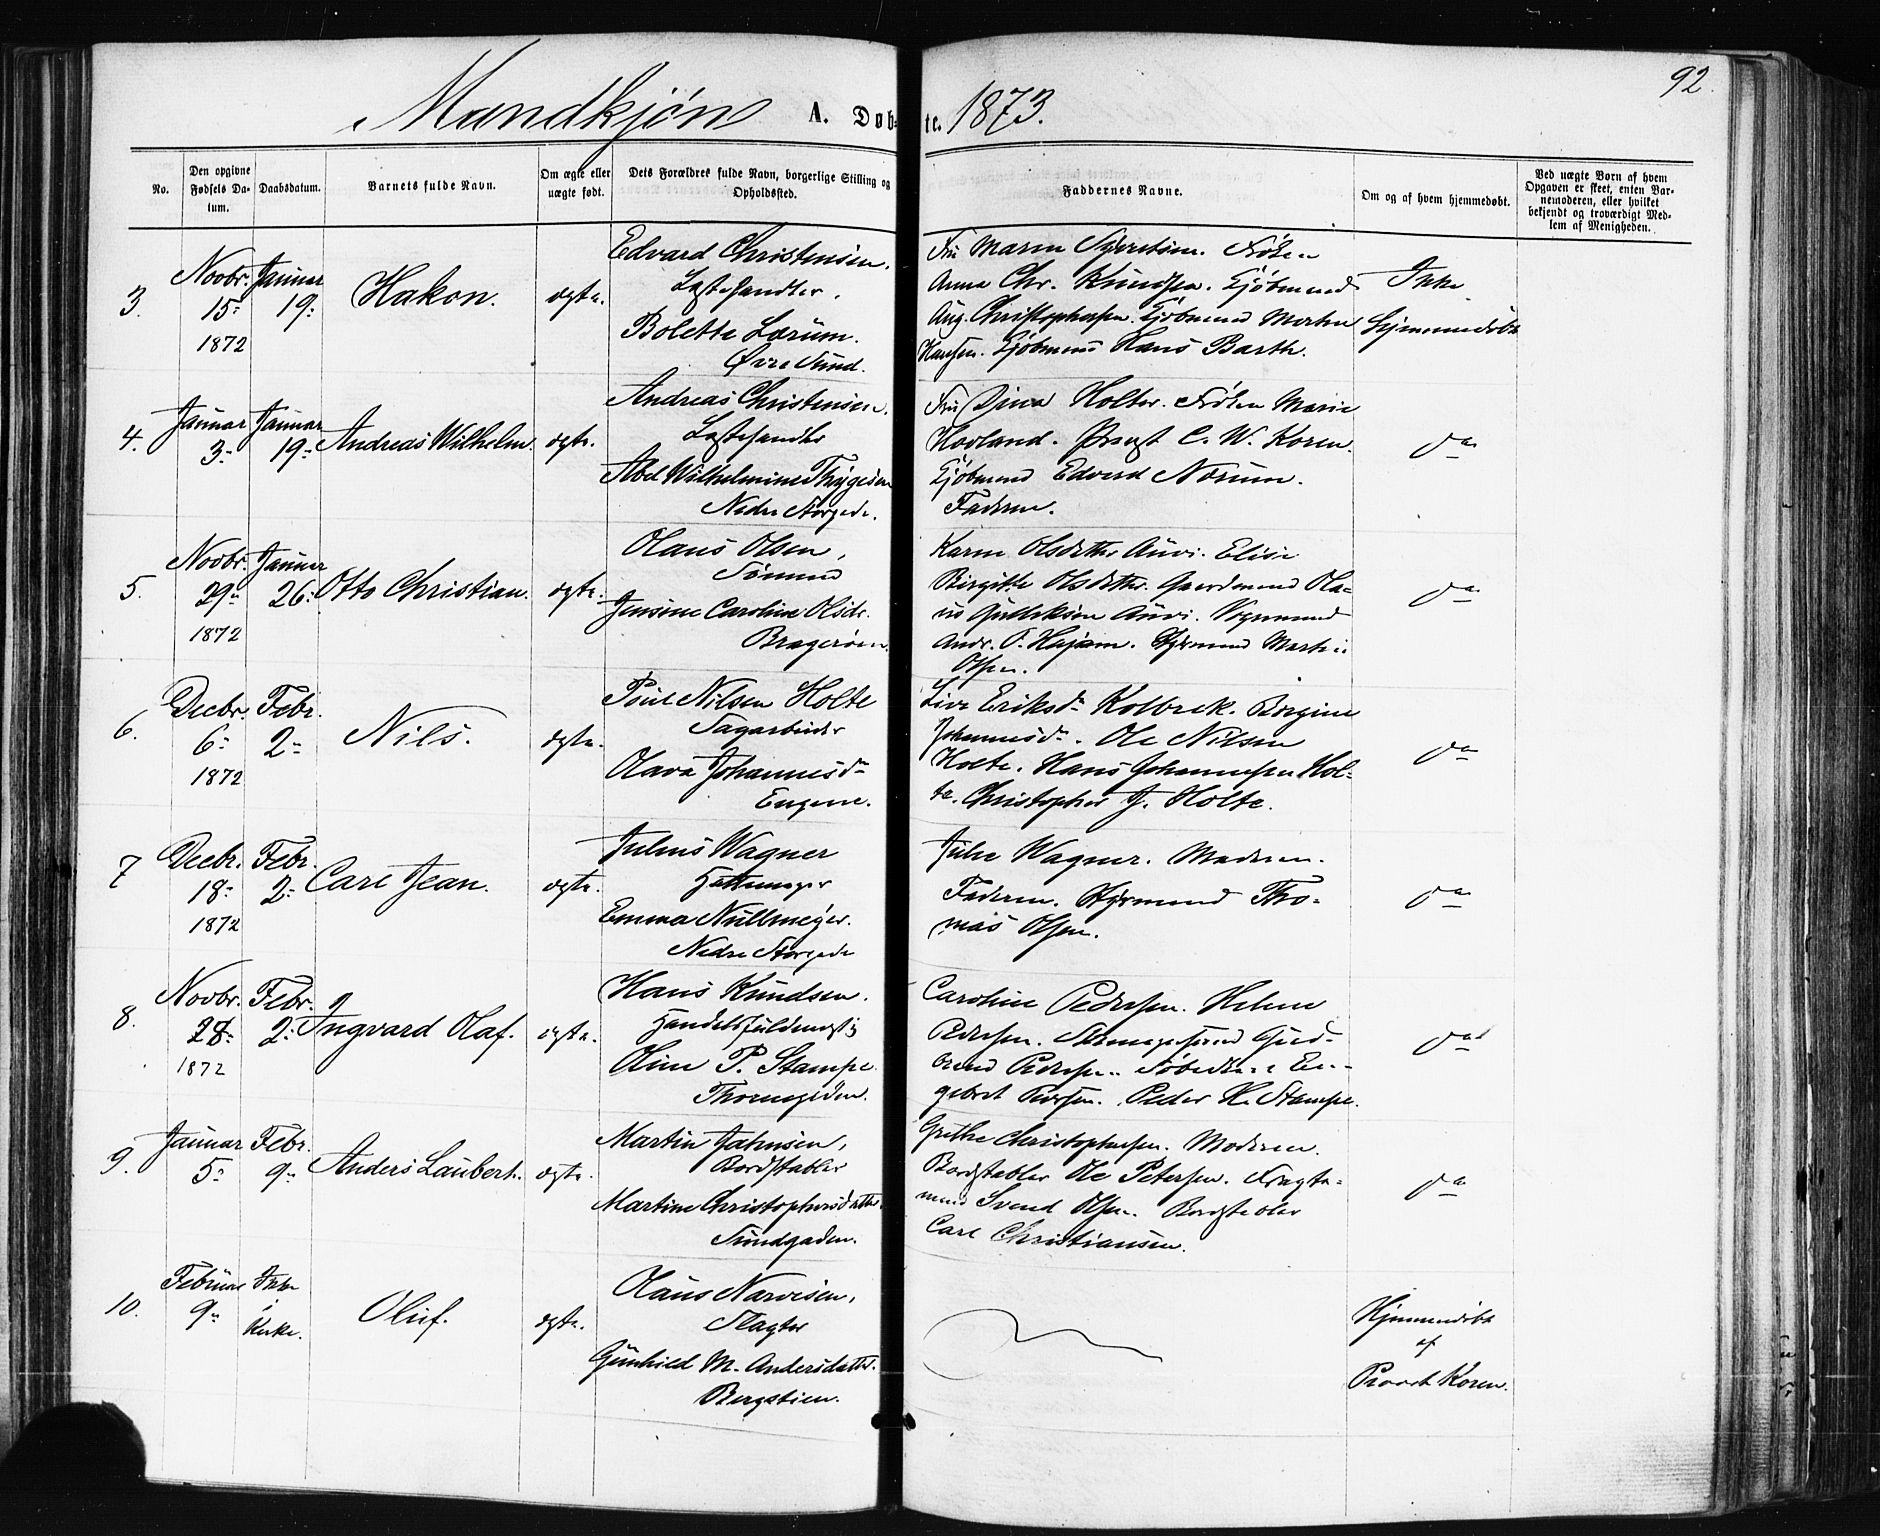 92.
Mandkjøn A. Døb-te. 1873.
No.
Den opgivne Fødsels Da-tum.
Daabsdatum.
Barnets fulde Navn.
Om ægte eller uægte født.
Dets Forældres fulde Navn, borgerlige Stilling og Opholdssted.
Faddernes Navne.
Om og af hvem hjemmedøbt.
Ved uægte Børn af hvem Opgaven er skeet, enten Bar-nemoderen, eller hvilket bekjendt og troværdigt Med-lem af Menigheden.
3.
Novbr. 15- 1872
Januar 19-
Hakon.
ægte.
Edvard Christensen.
Læstehandler.
Bolette Lærum.
Øvre Sund.
Fru Maren Syvertsen. Frøken
Anna Chr. Knudsen. Kjøbmænd
Aug. Christophersen. Kjøbmand Morten
Hansen. Kjøbmand Hans Barth.
Ikke
hjemmedøbt
4.
Januar 3-
Januar 19-
Andreas Wilhelm.
ægte.
Andreas Christensen.
Læstehandler
Abel Wilhelmine Thygesen
Nedre Storgade.
Fru Dina Holter. Frøken Marie
Hovland. Provst C. W. Koren.
Kjøbmand Edvard Nærum.
Faderen.
do
5.
Novbr. 29- 1872
Januar 26-
Otto Christian.
ægte.
Olaus Olsen,
Sømand
Jensine Caroline Olsdr.
Bragerøen.
Karen Olsdatter Auvi. Elise
Birgitte Olsdatter. Gaardmand Ola-
us Gulliksen Auvi. Vognmand
Andr. O. Hajem. Styrmand Martin
Olsen.
do
6.
Decbr. 6- 1872
Febr. 2-
Nils.
ægte.
Poul Nilsen Holte
Sagarbeider
Olava Johannesdr
Engene.
Live Eriksdr Kolbrek. Borgine
Johannesdr. Ole Nilsen
Holte. Hans Johannesen Hol-
te. Christopher J. Holte.
do
7
Decbr. 18- 1872
Febr. 2-
Carl Jean.
ægte.
Julius Wagner
Hattemager
Emma Nullmeyer.
Nedre Storgade
Julie Wagner. Moderen.
Faderen. Styrmand Tho-
mas Olsen.
do
8.
Novbr. 28- 1872
Febr. 2-
Ingvard Olaf.
ægte.
Hans Knudsen.
Handelsfuldmægtig
Oline P. Stampe.
Thornegaden.
Caroline Pedersen. Helene
Pedersen. Gud-
brand Pedersen. En-
gebret Pedersen. Peder H. Stampe.
do
9.
Januar 5-
Febr. 9-
Anders Laubert.
ægte.
Martin Johnsen,
Bordstabler
Martine Christophersdatter
Sundgaden.
Grethe Christophersen. Moderen.
Bordstabler Ole Petersen. Fragte-
mand Svend Olsen. Bordstabler
Carl Christiansen.
do
10.
Februar 9-
Ikke i Kirke.
Oluf.
ægte.
Olaus Narvesen,
Slagter
Gunhild M. Andersdatter.
Bergstien.
Hjemmedøbt
af
Provst Koren.